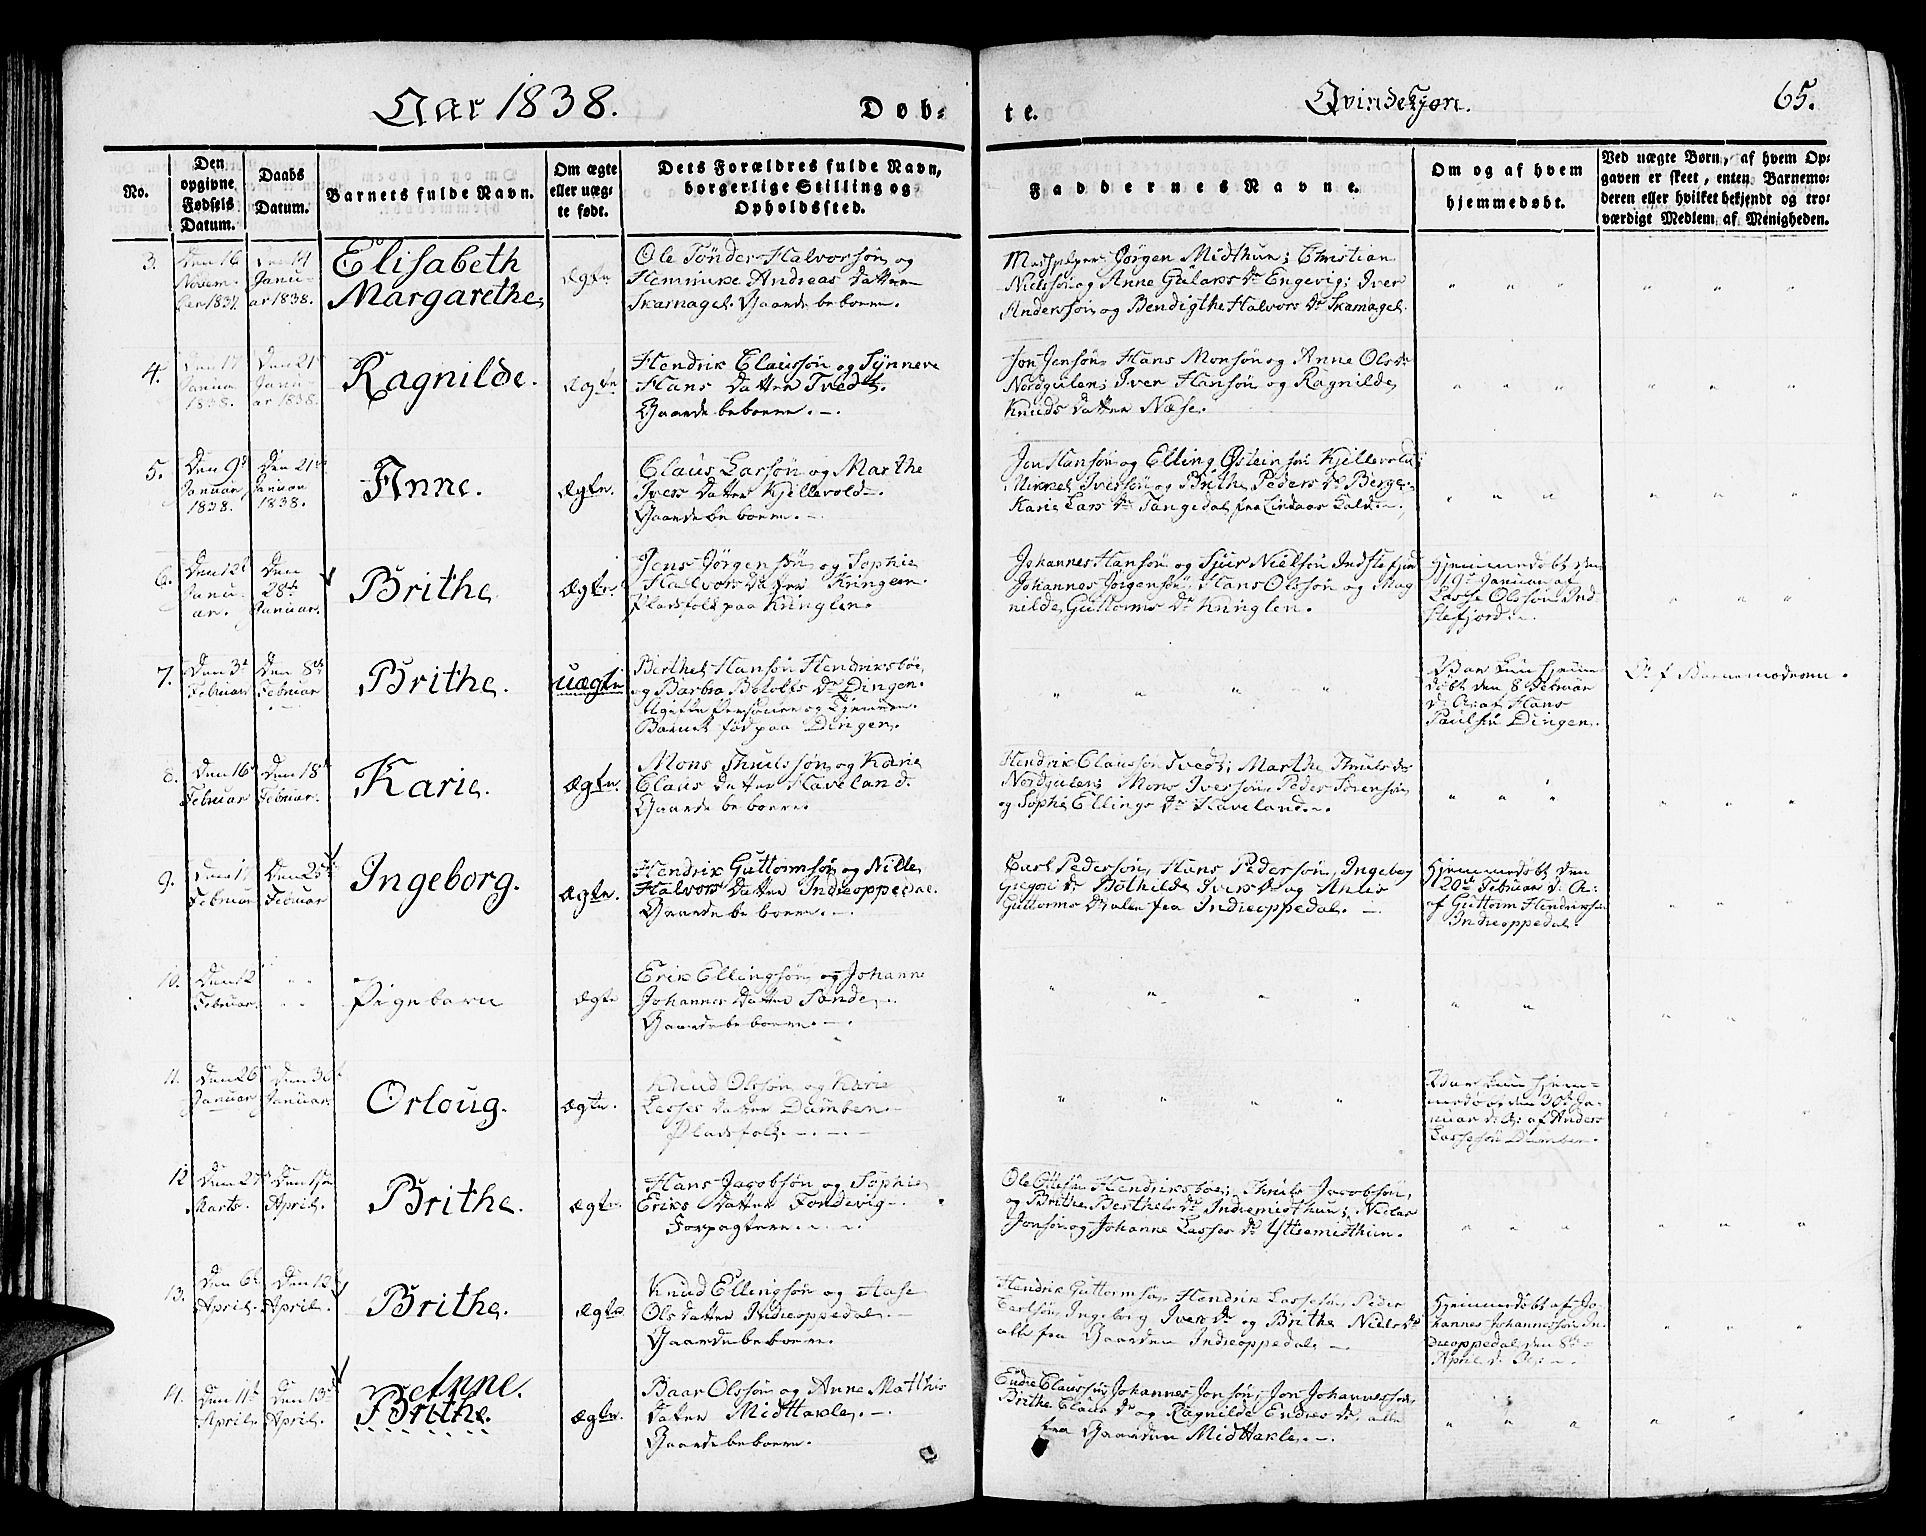 Aar 1838.
Døb-
te.
Qvindekjøn.
65.
No.
Den opgivne Fødsels Datum.
Daabs Datum.
Barnets fulde Navn.
Om ægte eller uægte født.
Dets Forældres fulde Navn, borgerlige Stilling og Opholdssted.
Faddernes Navne.
Om og af hvem hjemmedøbt.
Ved uægte Børn, af hvem Opgaven er skeet, enten Barnemoderen eller hvilket bekjendt og troværdigt Medlem af Menigheden.
3.
Den 16
Novem-
ber 1837.
Janu-
ar 1838.
Elisabeth
Margarethe
Ægte
Ole Tønder Halvorsøn og
Hemmike Andreas Datter
Skarnagel. Gaardebeboere.
Jørgen Midthun; Christian
Nielssøn og Anne Gulaks Dr Engevig; Iver
Anderssøn og Bendigthe Halvors Dr Skarnagel.
4.
Den 17
Januar
1838.
Den 21
Janu-
ar 1838.
Ragnilde.
Ægte
Hendrik Claussøn og Synneve
Hans Datter Tvedt.
Gaardebeboere.
Jon Jensøn, Hans Monsøn og Anne Ols Dr
Nordgulen; Iver Hansøn og Ragnilde
Knuds Datter Næse.
5.
Den 9d
Januar
1838.
Den 21
Januar
1838.
Anne.
Ægte.
Claus Larsøn og Marthe
Ivers Datter Kjellevold.
Gaardebeboere.
Jon Hansøn og Elling Østeinsøn Kjellevold;
Mikkel Iversøn og Brithe Peders Dr Berge;
Karie Lars Dr Tangedal fra Lindaas Kald.
6.
Den 12t
Janu-
ar.
Den
28de
Januar.
Brithe
Ægte.
Jens Jørgensøn og Sophie
Halvors Datter Kringlen.
Pladsfolk paa Kringlen.
Johannes Hansøn og Siur Nielsøn Indstefjord
Johannes Jørgensøn, Hans Olssøn og Mag
nilde Guttorms Dr Kringlen.
Hjemmedøbt den
19de Januar af
Lasse Olssøn Ind
stefjord.
7.
Den 3d
Februar
Den 8de
Februar
Brithe.
Uægte
Berthel Hansøn Hendriksbøe
og Barbra Botolfs Dr Dingen.
Ugifte Personer og
Barnet fød paa Dingen.
Var kun hjem-
døbt den 8 Februar
d: A: af Hans
Paulsen Dingen.
Af Barnemoderen.
8.
Den 16
Februar
Den 18
Februar.
Karie.
Ægte.
Mons Thrulssøn og Karie
Claus Datter Haveland.
Gaardebeboere.
Hendrik Claussøn Tvedt; Marthe Thruls Dr
Nordgulen; Mons Iversøn, Peder Sørensøn
og Sophie Ellings Dr Haveland.
9.
Den 17
Februar
Den 25
Februar
Ingeborg.
Ægte.
Hendrik Guttormsøn og Nille
Halvors Datter Indreoppedal.
Gaardebeboere.
Carl Pedersøn, Hans Pedersøn, Ingeborg
Gregori Dr Bothilde Ivers Dr og
Guttorms Dr alle fra Indreoppedal.
Hjemmedøbt den
20de Februar d: A:
af Guttorm Hendriksøn
Indreoppedal.
10.
Den 12
Februar.
Pigebarn
Ægte
Erik Ellingsøn og Johanne
Johannes Datter Sande.
Gaardebeboere.
11.
Den 26
Januar
Den 30t
Januar.
Orloug.
Ægte.
Knud Olssøn og Karie
Lasses Datter Dumben.
Pladsfolk.
Var kun hjem-
medøbt den 30te Ja-
nuar d: A: af Anders
Lassesøn Dumben.
12
Den 27
Marts.
Den 1ste
April.
Brithe.
Ægte.
Hans Jacobsøn og Sophie
Eriks Datter Fondevig.
Forpagtere.
Ole Olsen Hendriksbøe; Thruls Jacobsøn,
og Brithe Berthels Dr Indremidthun; Niels
Jonsøn og Johanne Lasses Dr Yttremidthun.
13.
Den 6t
April.
Den 12
April.
Brithe.
Ægte
Knud Ellingsøn og Aase
Ols Datter Indreoppedal.
Gaardebeboere.
Hendrik Guttormsøn, Hendrik Lassesøn, Peder
Carlsøn, Ingeborg Ivers Dr og Brithe Niels Dr
alle fra Gaarden Indreoppedal.
Hjemmedøbt af Jo-
hannes Johannessøn In-
dreoppedal den 8de
April
Den 11t
April.
Den 13
April.
Anne.
Brithe.
Ægte.
Baar Olssøn og Anne Mathis
Datter Midthavle.
Gaardebeboere.
Endre Claussøn, Johannes Jonsøn, Jon Johannessøn,
Brithe Claus Dr og Ragnilde Endres Dr, alle
fra Gaarden Midthavle.